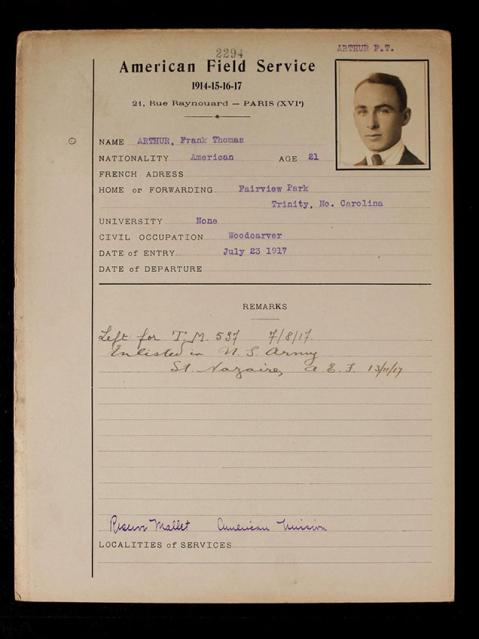 2294
ARTHUR F.T.
American Field Service
1914-15-16-17
21, Rue Raynouard — PARIS (XVIe)
NAME ARTHUR, Frank Thomas
NATIONALITY American AGE 21
FRENCH ADRESS
HOME or FORWARDING Fairview Park
Trinity, No. Carolina
UNIVERSITY None
CIVIL OCCUPATION Woodcarver
DATE of ENTRY July 23 1917
DATE of DEPARTURE
REMARKS
Left for T.M. 537 7/8/17.
Enlisted in U.S. Army
St. Nazaire, A.E.F. 13/11/17
Reserve Mallet American Mission
LOCALITIES of SERVICES